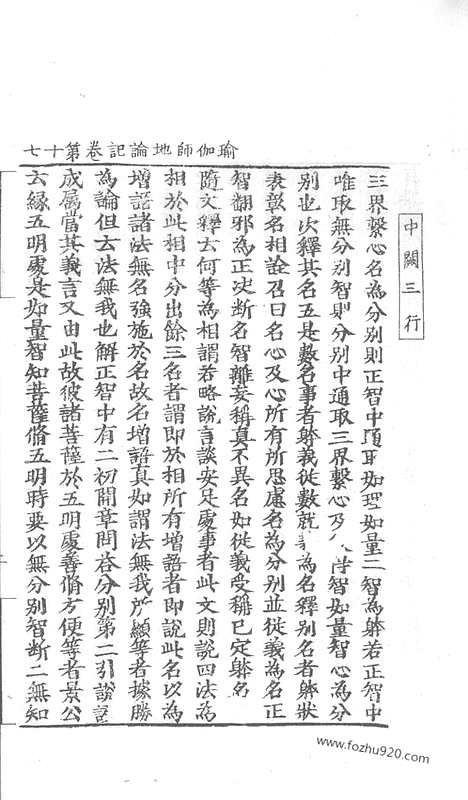 瑜伽師地論記卷第十七
中闕三行
三界繫心名為分別則正智中通取如理如量二智為躰若正智中
唯取無分別智則分別中通取三界繫心及 智如量智心為分
別也次釋其名五是數名事者躰義從數就 為名釋別名者躰狀
表彰名相詮召曰名心及心所有所思慮名為分別並從義為名正
智翻邪為正决断名智離妄稱真不異名如從義受稱已定躰名
隨文釋云何等為相謂若略說言談安足處事者此文則說四法為
相於此相中分出餘三名者謂即於相所有增語者即說此名以為
增語諸法無名強施於名故名增語真如謂法無我所顯等者據勝
為論但云法無我也解正智中有二初開章問荅分別第二引說
成屬當其義言又由此故彼諸菩薩於五明處善脩方便等者景公
云緣五明處是如量智知菩薩脩五明時要以無分別智断二無知
www.fozhu920.com